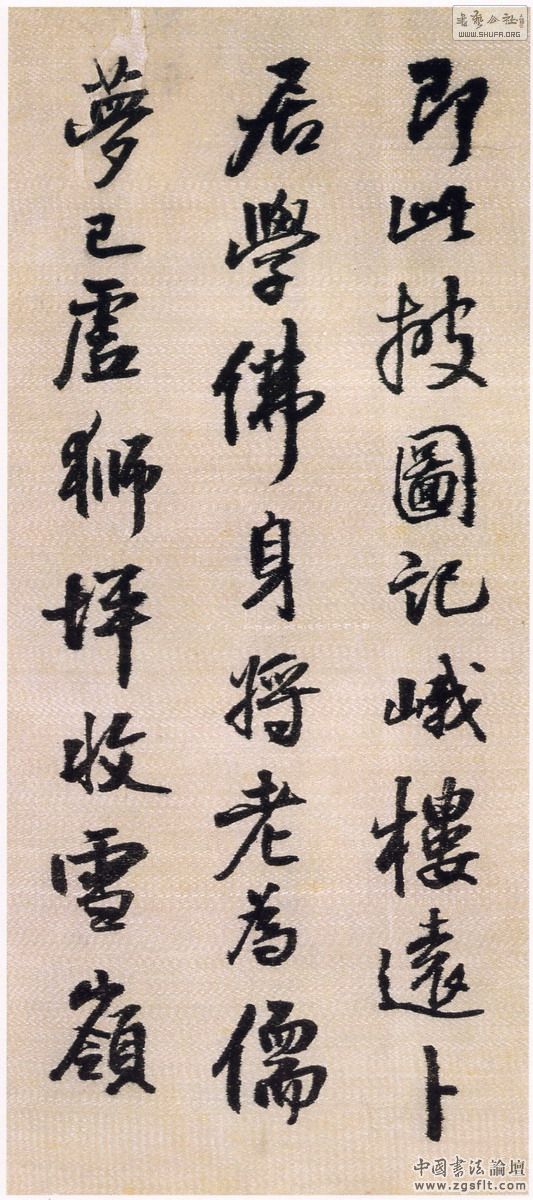 即此披圖記峨樓遠卜
居學佛身將老為儒
夢已虛獅坪收雪嶺
WWW.SHUFA.ORG
中國書法論壇
www.zgsflt.com